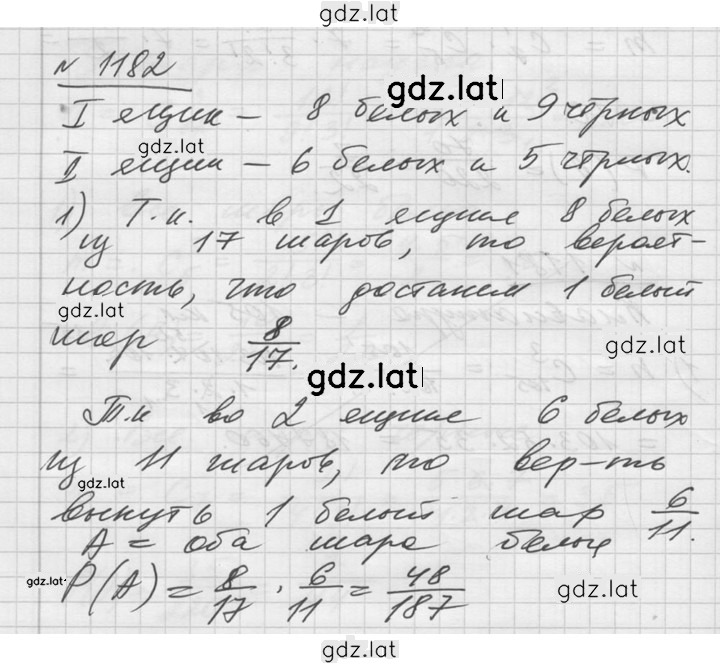 gdz.lat
№ 1182
gdz.lat
I ящик – 8 белых и 9 чёрных
gdz.lat
II ящик – 6 белых и 5 чёрных.
gdz.lat
1) Т.к. в 1 ящике 8 белых
из 17 шаров, то вероят-
ность, что достанем 1 белый
gdz.lat
шар 8/17.
gdz.lat
gdz.lat
Т.к во 2 ящике 6 белых
из 11 шаров, то вер-ть
gdz.lat
вынуть 1 белый шар 6/11.
A = оба шара белые
gdz.lat
P(A) = 8/17 · 6/11 = 48/187
gdz.lat
gdz.lat